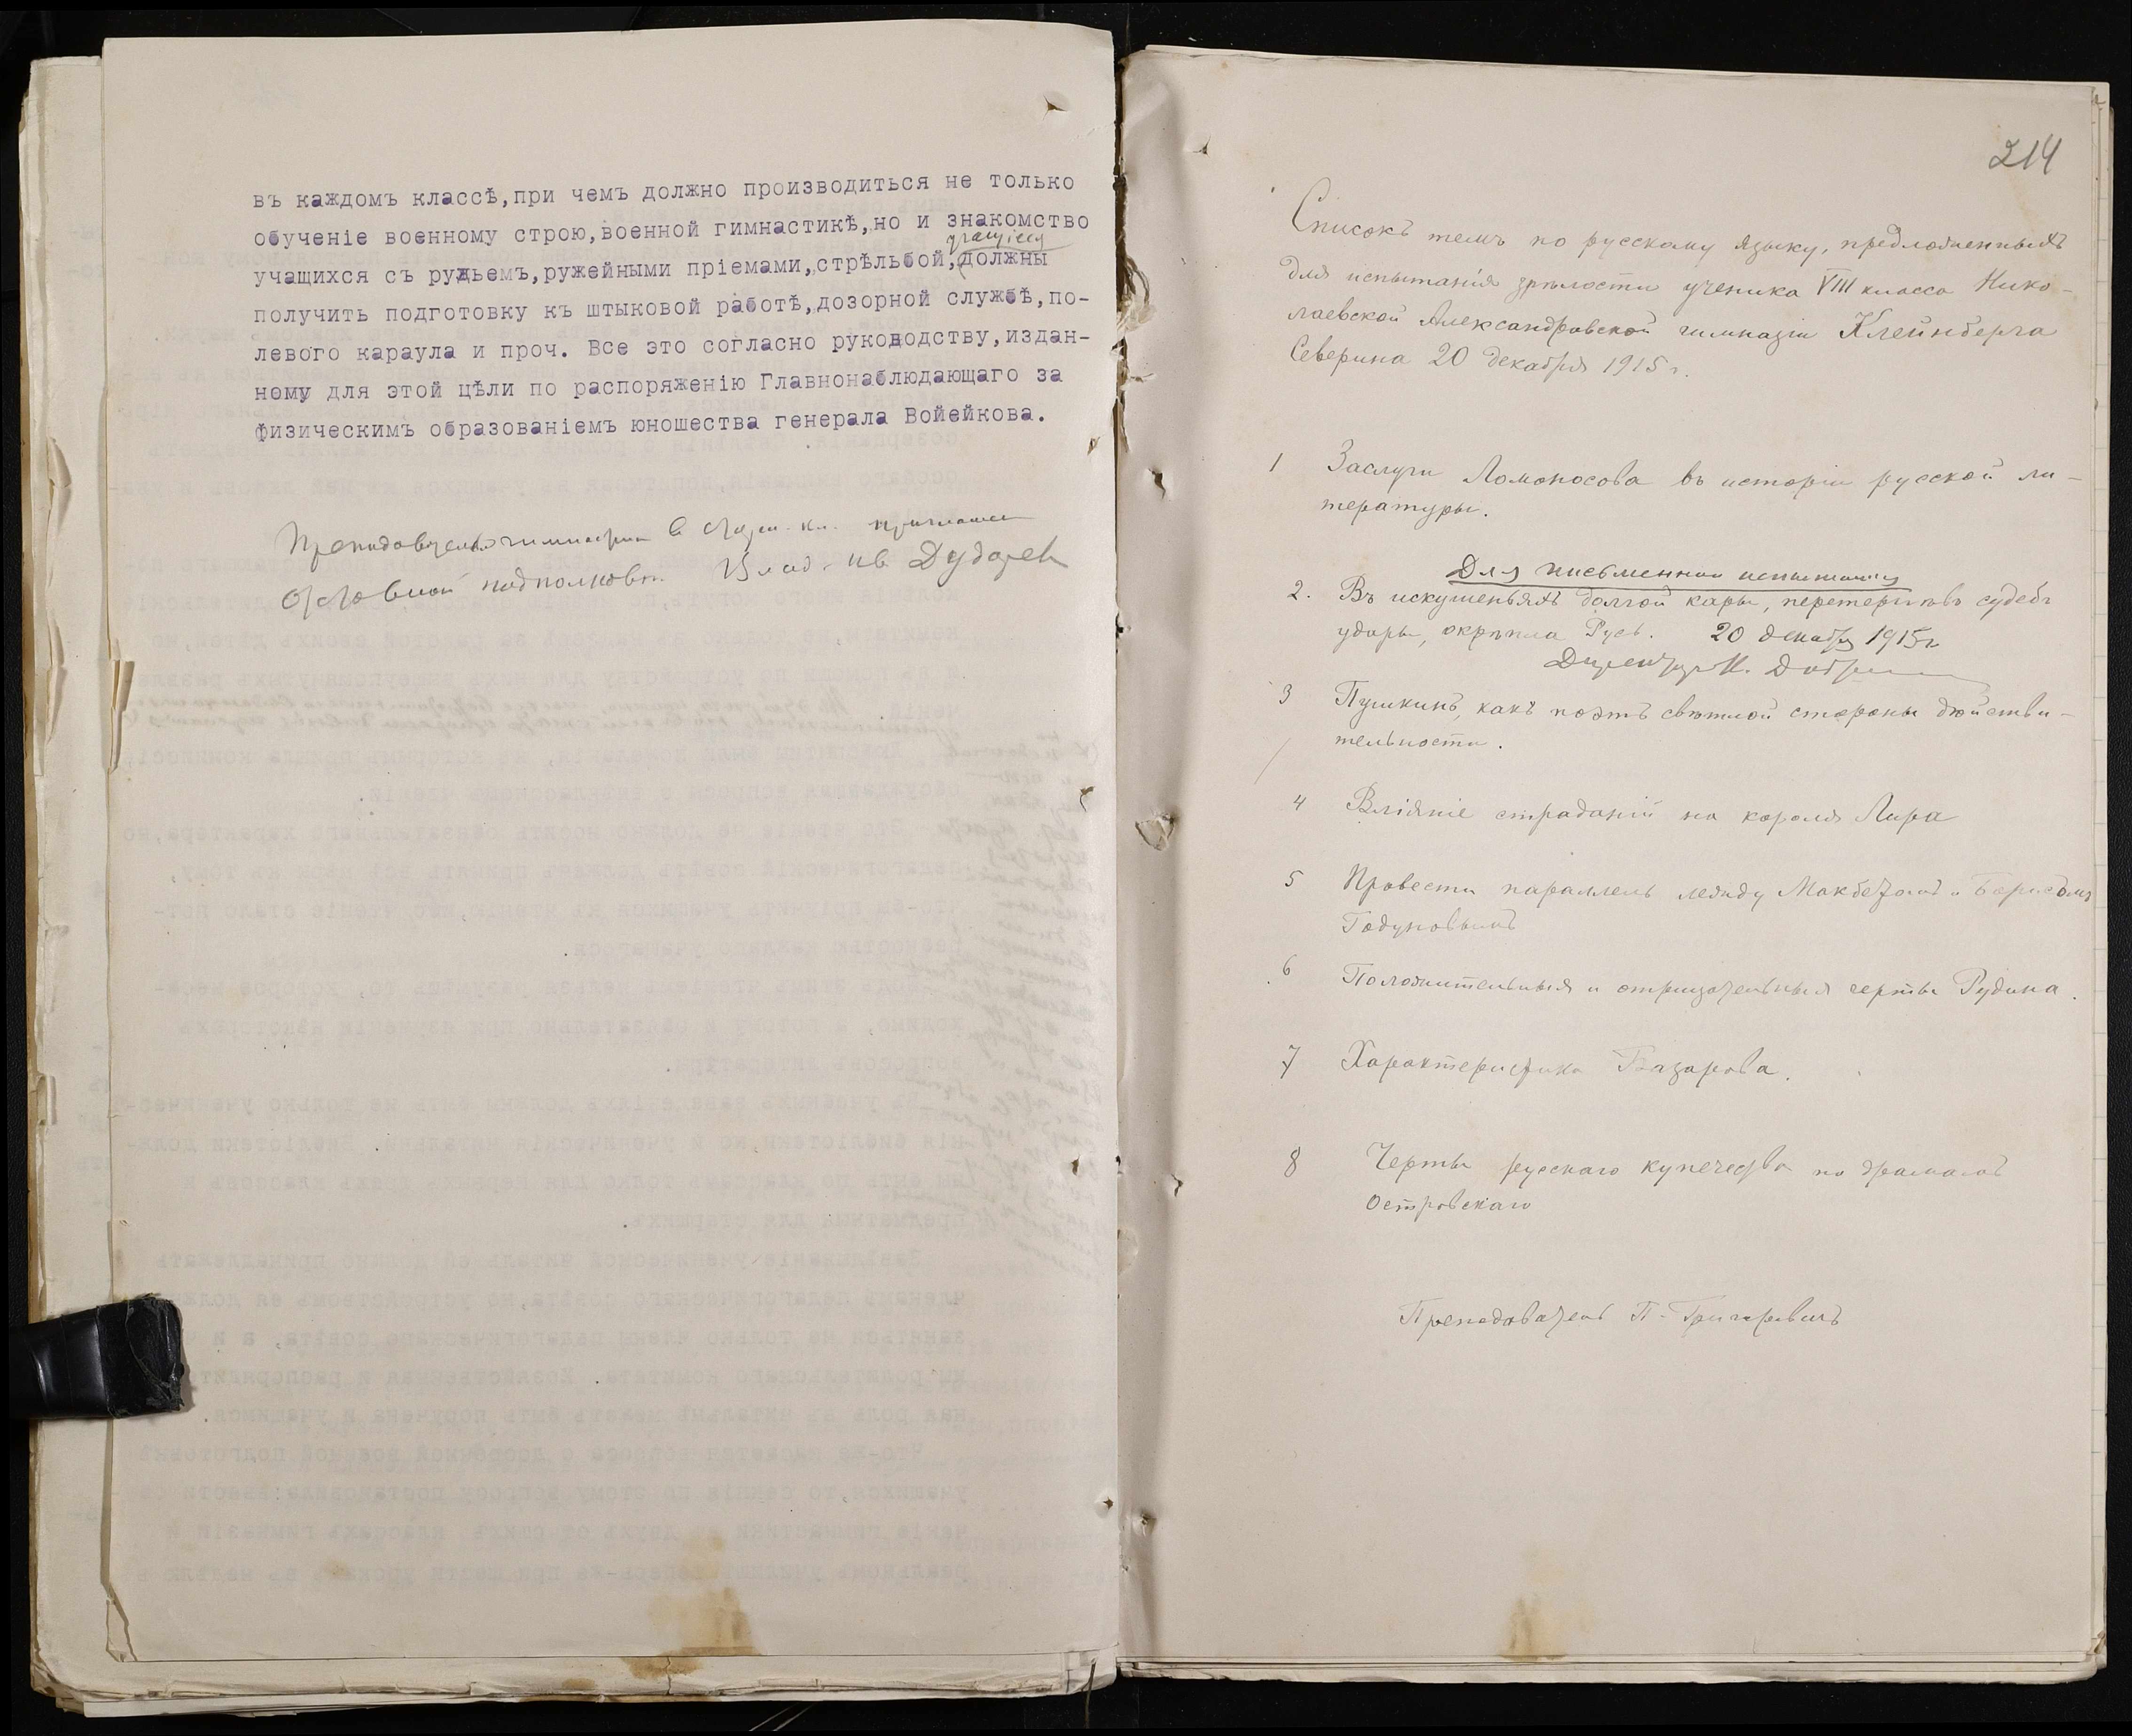 въ каждомъ классѣ,при чемъ должно производиться не только
обученіе военному строю,военной гимнастикѣ,но и знакомство
учащіеся
учащихся съ ружьемъ,ружейными пріемами,стрѣльбой,должны
получить подготовку къ штыковой работѣ,дозорной службѣ,по-
левого караула и проч. Все это согласно руководству,издан-
ному для этой цѣли по распоряженію Главнонаблюдающаго за
физическимъ образованіемъ юношества генерала Войейкова.
Преподаватель гимнастики в
отставной подполковн. Влад. Ив. Дударев
214
Списокъ темъ по русскому языку, предложенныхъ
для испытанія зрѣлости ученика VIII класса Нико-
лаевской Александровской гимназіи Клейнберга
Северина 20 декабря 1915 г.
1 Заслуги Ломоносова въ исторіи русской ли-
тературы.
Для письменнаго испытанія
2. Въ искушеньяхъ долгой кары, перетерпѣвъ судебъ
удары, окрѣпла Русь. 20 декабря 1915 г
Директоръ Н.
3 Пушкинъ, какъ поэтъ свѣтлой стороны дѣйстви-
тельности.
4 Вліяніе страданій на короля Лира
5 Провести параллель между Макбетомъ и Борисомъ
Годуновымъ
6 Положительныя и отрицательныя черты Рудина.
7 Характеристика Базарова.
8 Черты русскаго купечества по драмамъ
Островскаго
Преподаватель П. Григоровичъ